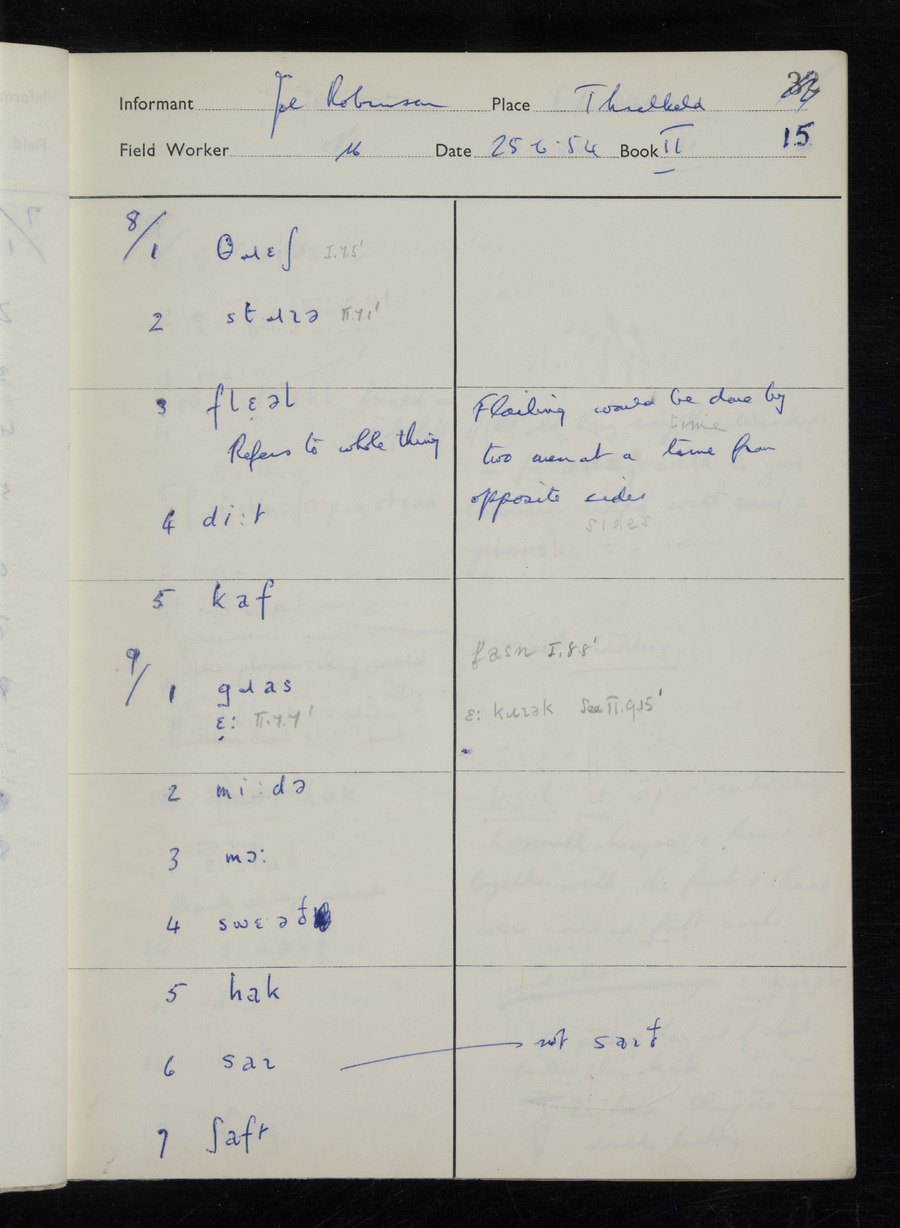 Informant Joe Robinson Place Threlkeld
Field Worker Date 25·6·54 Book II 15
8/1 θɹɛʃ I.7.5'
2 stɹɪə II.7.1'
3 flɛ̣əl
Refers to whole thing
Flailing would be done by
time
two men at a time from
opposite sides
sides
4 di:t
5 kaf
fasn I.8.8'
9/1 gɹas
ɛ: II.7.7'
ɛ: kɹɪək See II.9.15'
2 mi:də
3 mɔ:
4 swɛəð
5 hak
6 saɪ not saɪð
7 ʃaft